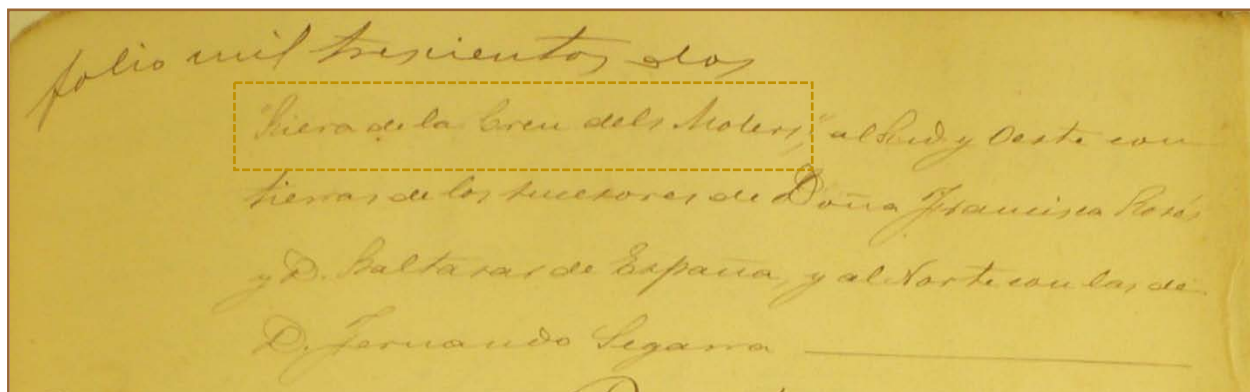 folio mil trescientos dos
"Riera de la Creu dels Molers," al Sud y Oeste con
tierras de los sucesores de Doña Francisca Rosés
y D. Baltasar de España, y al Norte con las de
D. Fernando Segarra